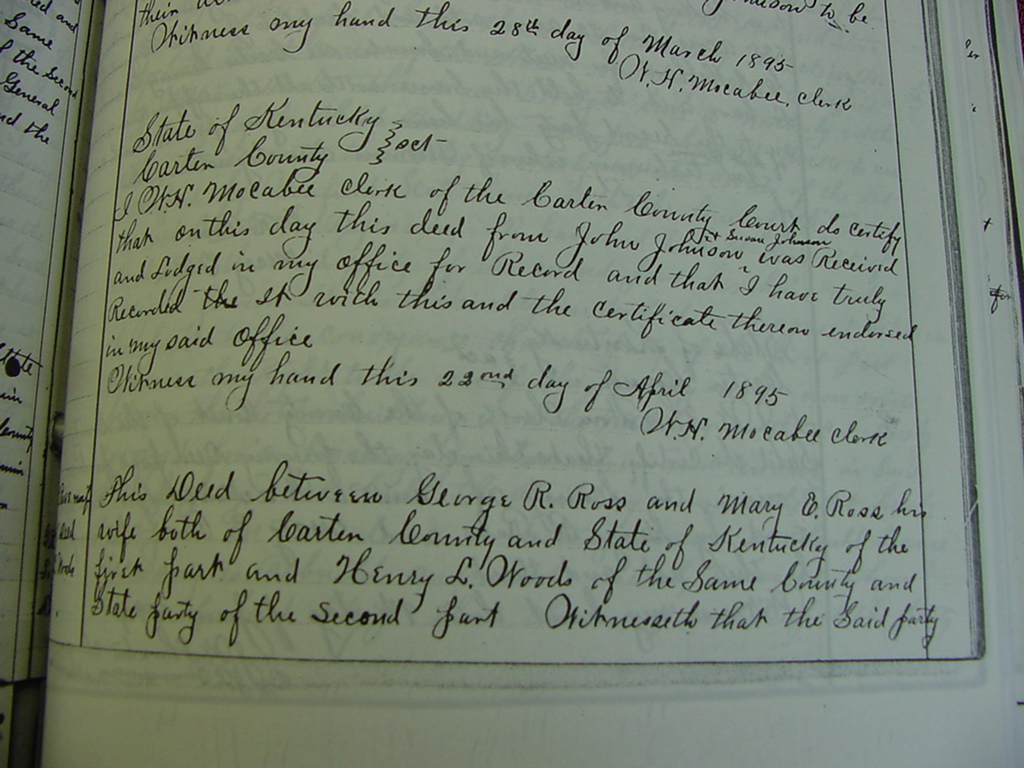 to be
their
Witness my hand this 28th day of March 1895
W.H. Mocabee, clerk
State of Kentucky
Carter County } sct
I W.H. Mocabee clerk of the Carter County Court do certify
that on this day this deed from John Johnson & Susan Johnson was Received
and Lodged in my office for Record and that I have truly
Recorded the It with this and the certificate thereon endorsed
in my said office
Witness my hand this 22nd day of April 1895
W.H. Mocabee clerk
This Deed between George R. Ross and Mary E. Ross his
wife both of Carter County and State of Kentucky of the
first part and Henry L. Woods of the Same County and
State party of the Second part Witnesseth that the Said party
Same
of the Second
General
and the